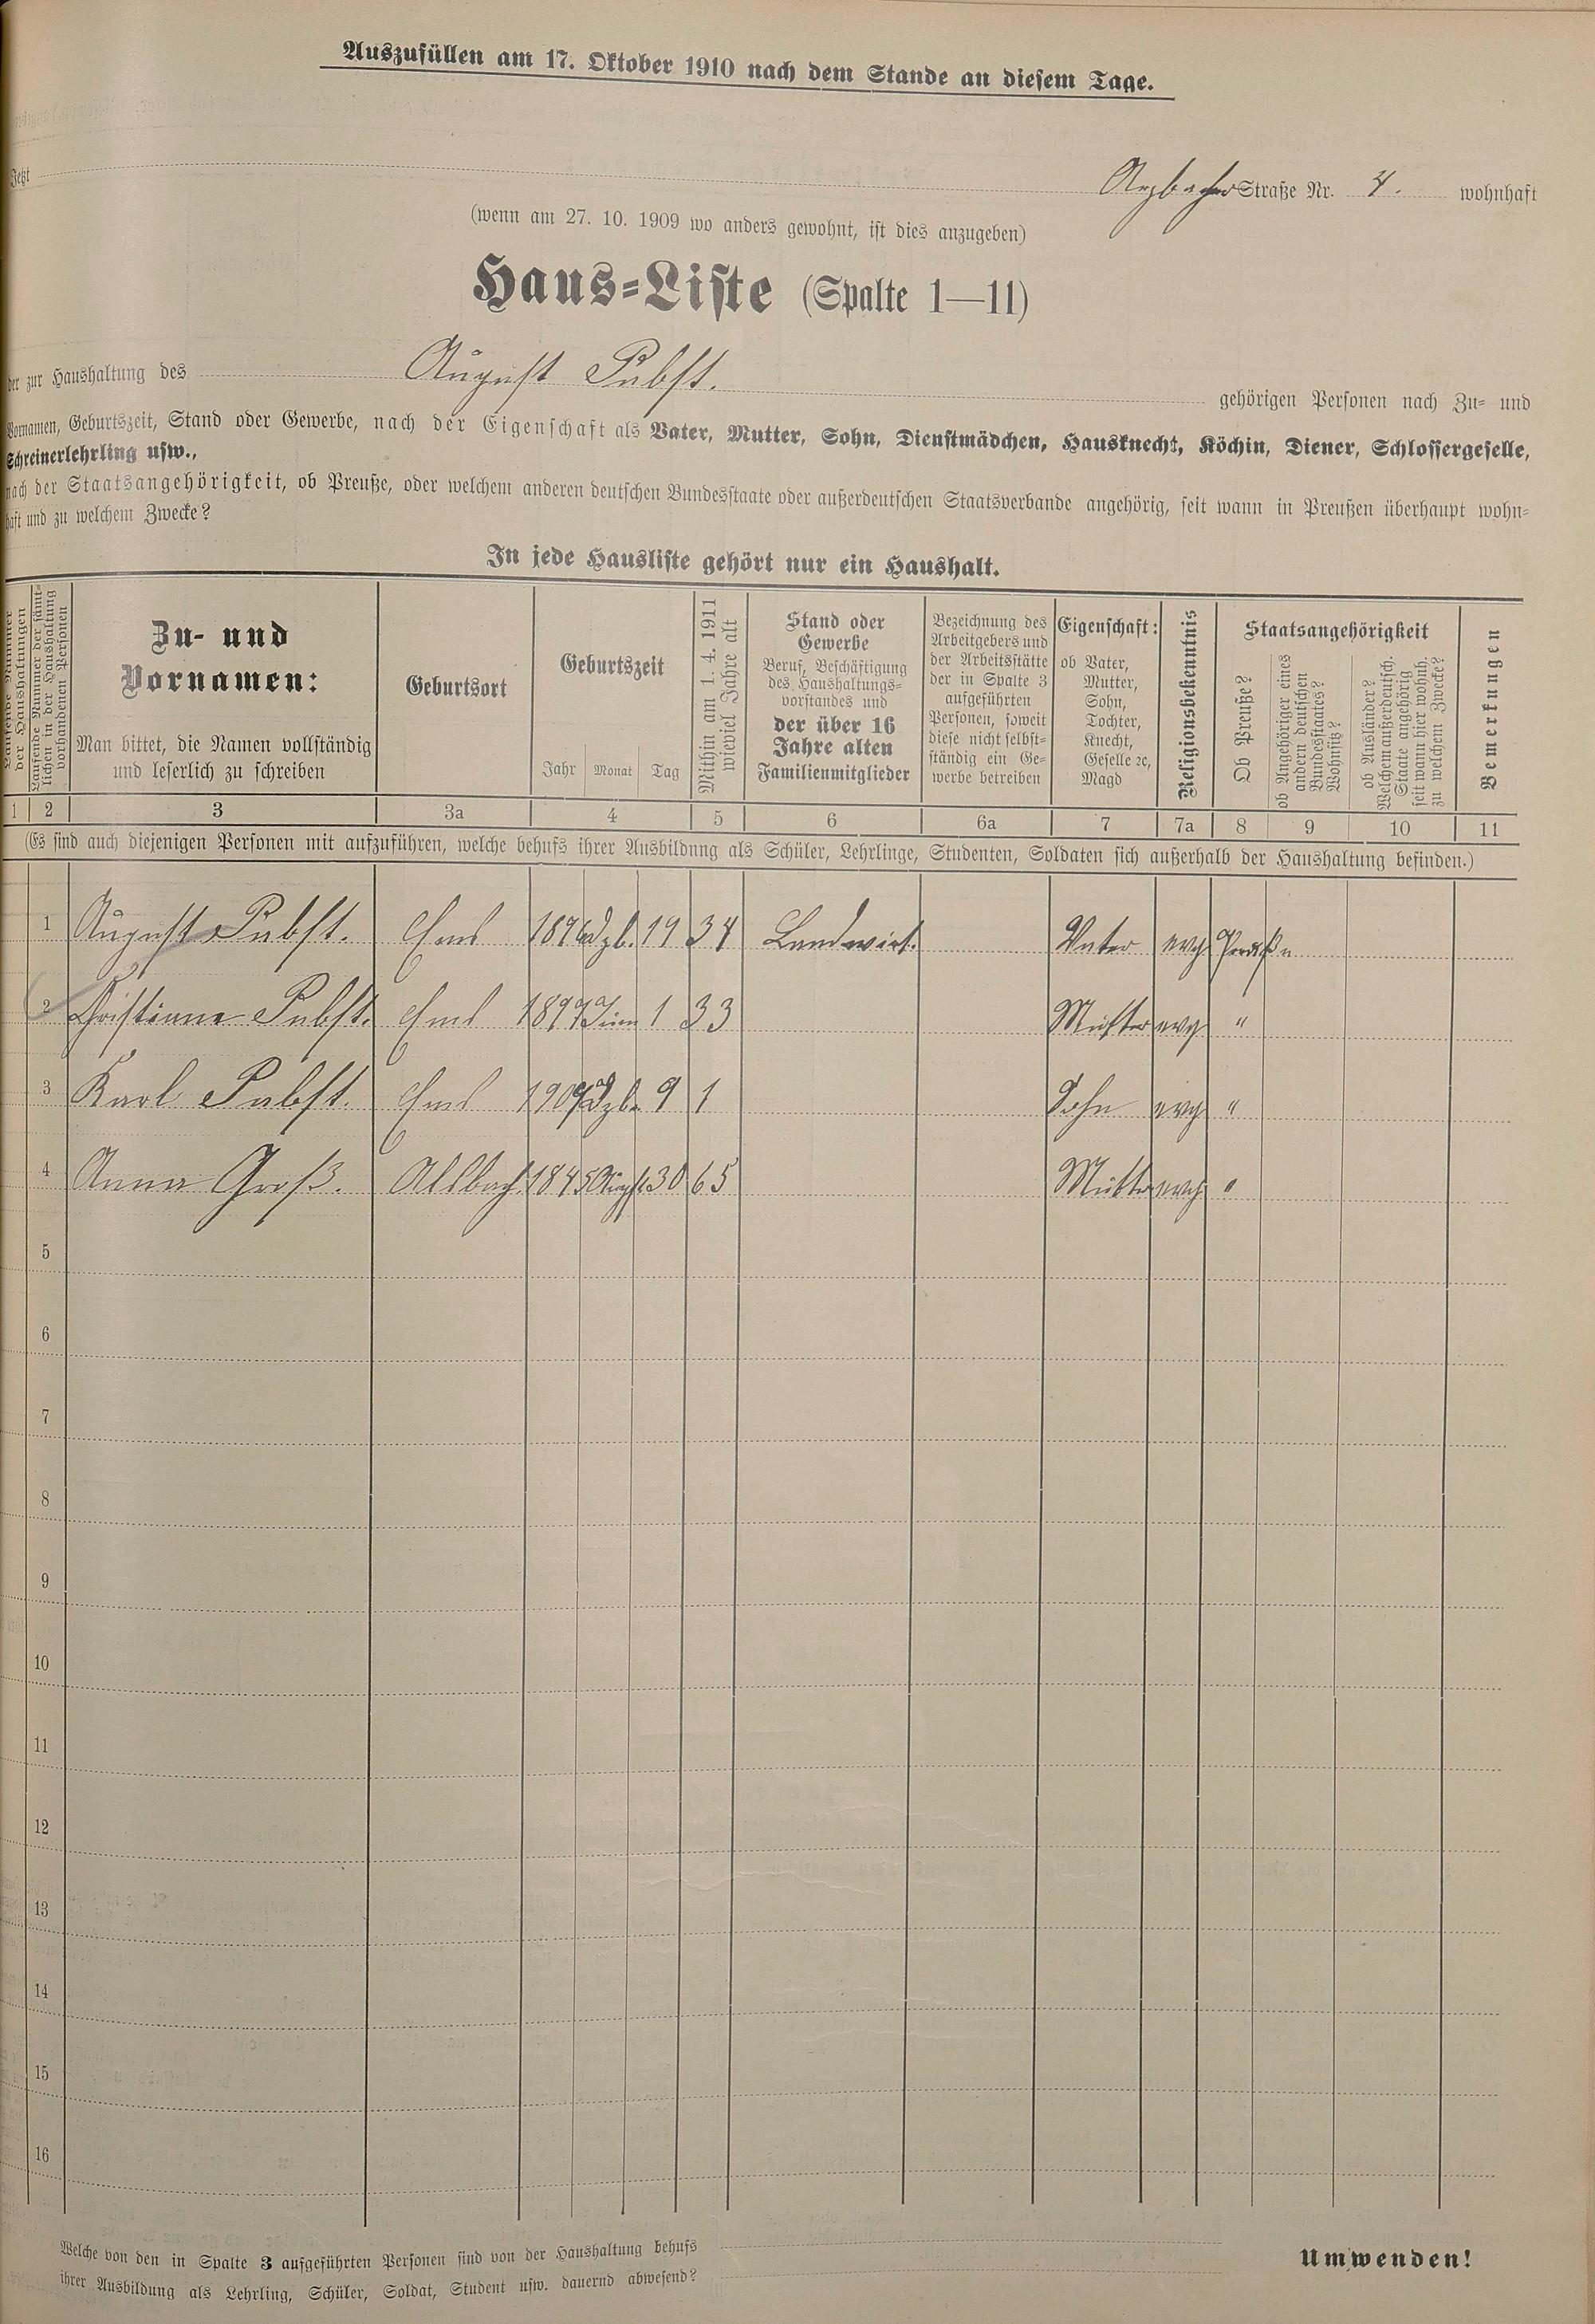 Auszufüllen am 17. Oktober 1910 nach dem Stande an diesem Tage.
Jetzt Arzbacher Straße Nr. 4. wohnhaft
(wenn am 27. 10. 1909 wo anders gewohnt, ist dies anzugeben)
Haus-Liste (Spalte 1—11)
der zur Haushaltung des August Pabst. gehörigen Personen nach Zu- und
Vornamen, Geburtszeit, Stand oder Gewerbe, nach der Eigenschaft als Vater, Mutter, Sohn, Dienstmädchen, Hausknecht, Köchin, Diener, Schlossergeselle,
Schreinerlehrling usw.,
nach der Staatsangehörigkeit, ob Preuße, oder welchem anderen deutschen Bundesstaate oder außerdeutschen Staatsverbande angehörig, seit wann in Preußen überhaupt wohn-
haft und zu welchem Zwecke?
In jede Hausliste gehört nur ein Haushalt.
Laufende Nummer
der Haushaltungen
Laufende Nummer der sämt-
lichen in der Haushaltung
vorhandenen Personen
Zu- und
Vornamen:
Man bittet, die Namen vollständig
und leserlich zu schreiben
Geburtsort
Geburtszeit
Jahr Monat Tag
Mithin am 1. 4. 1911
wieviel Jahre alt
Stand oder
Gewerbe
Beruf, Beschäftigung
des Haushaltungs-
vorstandes und
der über 16
Jahre alten
Familienmitglieder
Bezeichnung des
Arbeitgebers und
der Arbeitsstätte
der in Spalte 3
aufgeführten
Personen, soweit
diese nicht selbst-
ständig ein Ge-
werbe betreiben
Eigenschaft:
ob Vater,
Mutter,
Sohn,
Tochter,
Knecht,
Geselle ꝛc,
Magd
Religionsbekenntnis
Staatsangehörigkeit
Ob Preuße?
ob Angehöriger eines
andern deutschen
Bundesstaates?
Wohnsitz?
ob Ausländer?
Welchem außerdeutsch.
Staate angehörig
seit wann hier wohnh.
zu welchem Zwecke?
Bemerkungen
1 2 3 3a 4 5 6 6a 7 7a 8 9 10 11
(Es sind auch diejenigen Personen mit aufzuführen, welche behufs ihrer Ausbildung als Schüler, Lehrlinge, Studenten, Soldaten sich außerhalb der Haushaltung befinden.)
1 August Pabst. Ems 1876 Dzb. 19 34 Landwirt. Vater evg Preuße
2 Christiane Pabst. Ems 1877 Juni 1 33 Mutter evg "
3 Karl Pabst. Ems 1909 Dzb. 9 1 Sohn evg "
4 Anna Groß. 1845 August 30 65 Mutter evg "
5
6
7
8
9
10
11
12
13
14
15
16
Welche von den in Spalte 3 aufgeführten Personen sind von der Haushaltung behufs
ihrer Ausbildung als Lehrling, Schüler, Soldat, Student usw. dauernd abwesend?
Umwenden!